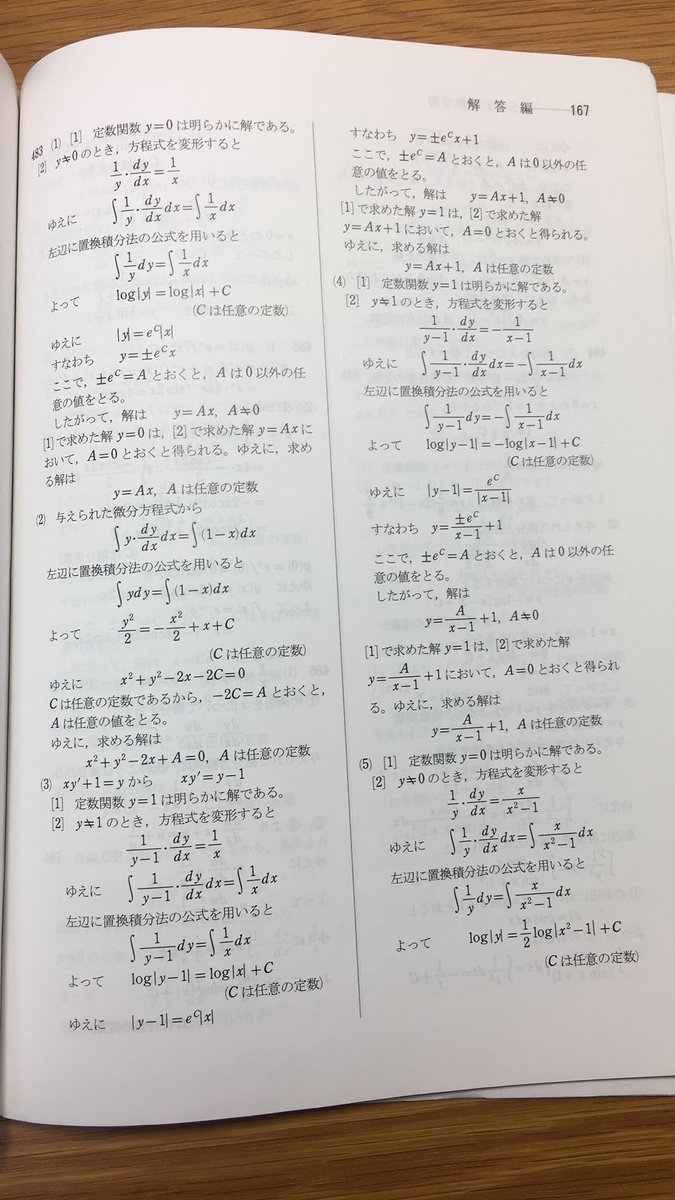 解 答 編 167
483 (1) [1] 定数関数 y=0 は明らかに解である。
[2] y≠0 のとき，方程式を変形すると
1/y・dy/dx=1/x
ゆえに ∫1/y・dy/dx dx=∫1/x dx
左辺に置換積分法の公式を用いると
∫1/y dy=∫1/x dx
よって log|y|=log|x|+C
(C は任意の定数)
ゆえに |y|=e^C|x|
すなわち y=±e^C x
ここで，±e^C=A とおくと，A は 0 以外の任
意の値をとる。
したがって，解は y=Ax, A≠0
[1] で求めた解 y=0 は，[2] で求めた解 y=Ax に
おいて，A=0 とおくと得られる。ゆえに，求め
る解は
y=Ax, A は任意の定数
(2) 与えられた微分方程式から
∫y・dy/dx dx=∫(1-x)dx
左辺に置換積分法の公式を用いると
∫ydy=∫(1-x)dx
よって y²/2=-x²/2+x+C
(C は任意の定数)
ゆえに x²+y²-2x-2C=0
C は任意の定数であるから，-2C=A とおくと，
A は任意の値をとる。
ゆえに，求める解は
x²+y²-2x+A=0, A は任意の定数
(3) xy′+1=y から xy′=y-1
[1] 定数関数 y=1 は明らかに解である。
[2] y≠1 のとき，方程式を変形すると
1/(y-1)・dy/dx=1/x
ゆえに ∫1/(y-1)・dy/dx dx=∫1/x dx
左辺に置換積分法の公式を用いると
∫1/(y-1) dy=∫1/x dx
よって log|y-1|=log|x|+C
(C は任意の定数)
ゆえに |y-1|=e^C|x|
すなわち y=±e^C x+1
ここで，±e^C=A とおくと，A は 0 以外の任
意の値をとる。
したがって，解は y=Ax+1, A≠0
[1] で求めた解 y=1 は，[2] で求めた解
y=Ax+1 において，A=0 とおくと得られる。
ゆえに，求める解は
y=Ax+1, A は任意の定数
(4) [1] 定数関数 y=1 は明らかに解である。
[2] y≠1 のとき，方程式を変形すると
1/(y-1)・dy/dx=-1/(x-1)
ゆえに ∫1/(y-1)・dy/dx dx=-∫1/(x-1) dx
左辺に置換積分法の公式を用いると
∫1/(y-1) dy=-∫1/(x-1) dx
よって log|y-1|=-log|x-1|+C
(C は任意の定数)
ゆえに |y-1|=e^C/|x-1|
すなわち y=±e^C/(x-1)+1
ここで，±e^C=A とおくと，A は 0 以外の任
意の値をとる。
したがって，解は
y=A/(x-1)+1, A≠0
[1] で求めた解 y=1 は，[2] で求めた解
y=A/(x-1)+1 において，A=0 とおくと得られ
る。ゆえに，求める解は
y=A/(x-1)+1, A は任意の定数
(5) [1] 定数関数 y=0 は明らかに解である。
[2] y≠0 のとき，方程式を変形すると
1/y・dy/dx=x/(x²-1)
ゆえに ∫1/y・dy/dx dx=∫x/(x²-1) dx
左辺に置換積分法の公式を用いると
∫1/y dy=∫x/(x²-1) dx
よって log|y|=1/2 log|x²-1|+C
(C は任意の定数)